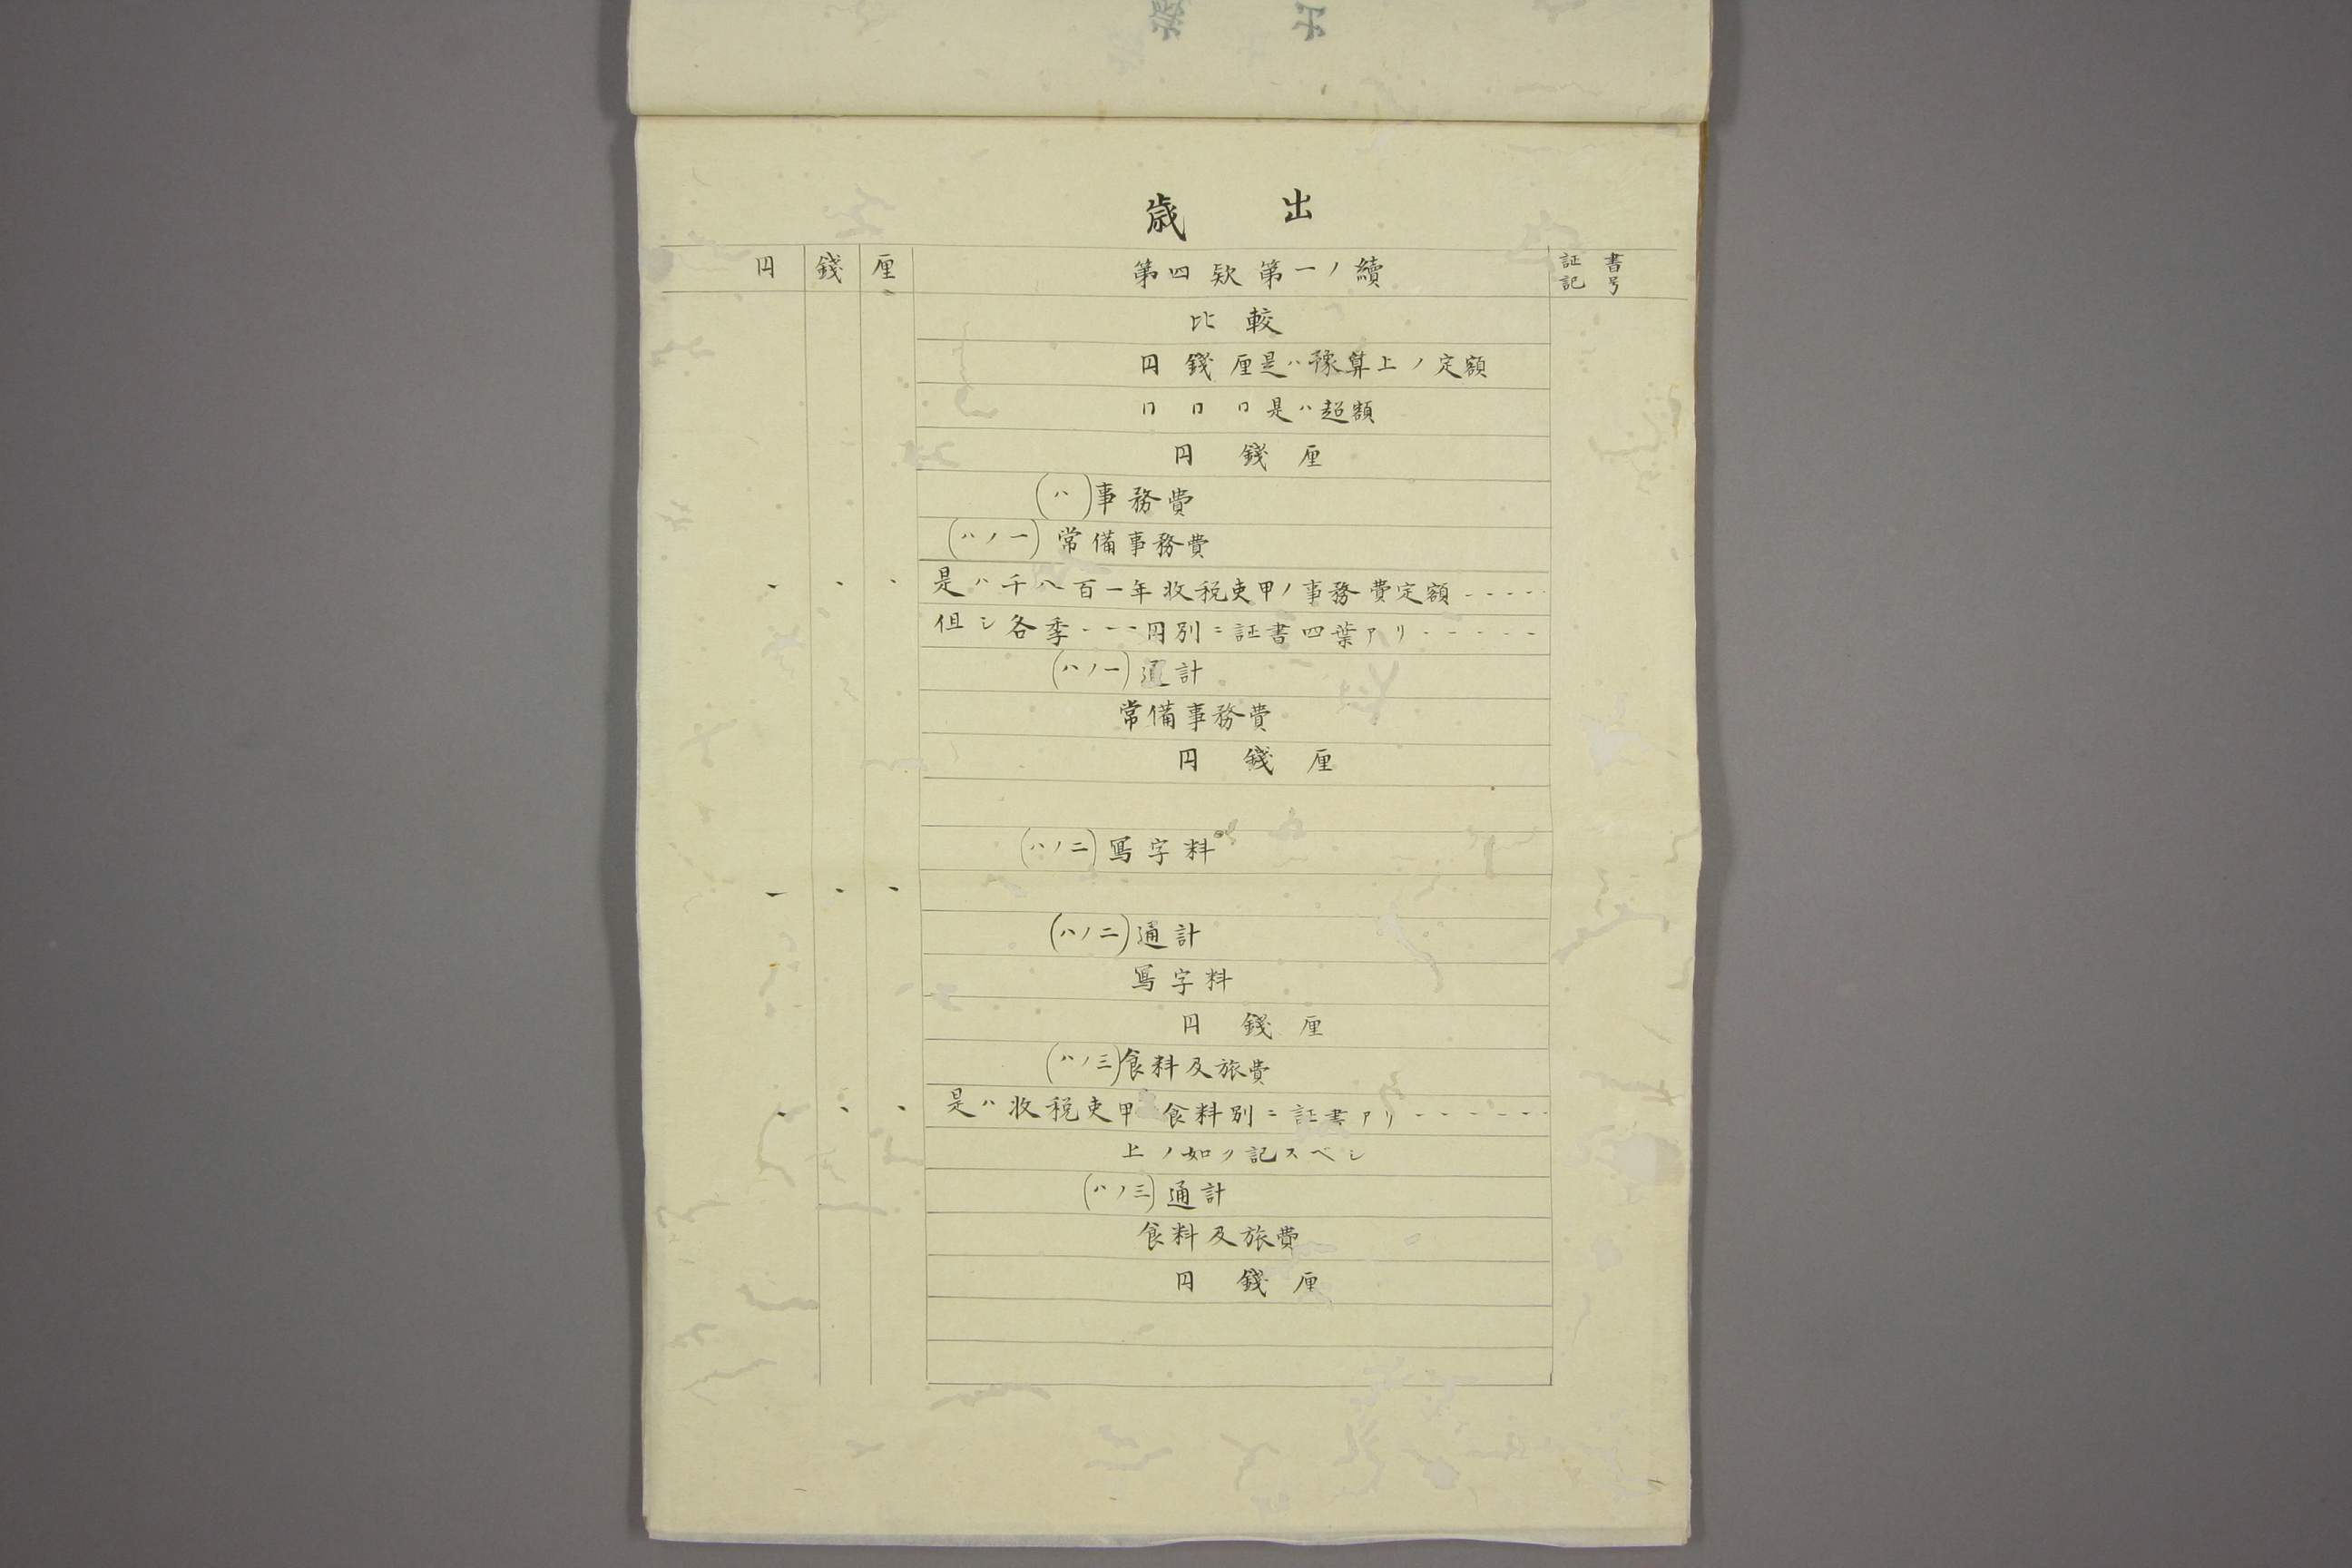 歳出
円 錢 厘 第四欵第一ノ續 証書記号
比較
円 錢 厘是ハ豫算上ノ定額
〃 〃 〃是ハ超額
円 錢 厘
(ハ)事務費
(ハノ一)常備事務費
是ハ千八百一年收税吏甲ノ事務費定額-----
但シ各季---円別ニ証書四葉アリ-----
(ハノ一)通計
常備事務費
円 錢 厘
(ハノ二)寫字料
(ハノ二)通計
寫字料
円 錢 厘
(ハノ三)食料及旅費
是ハ收税吏甲 食料別ニ証書アリ------
上ノ如ク記スベシ
(ハノ三)通計
食料及旅費
円 錢 厘